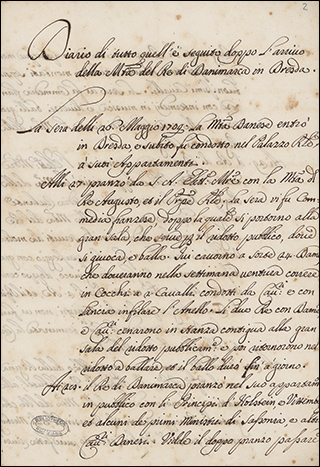 2
Diario di tutto quell'è seguito doppo l'arrivo
della Mtà. del Rè di Danimarca in Dresda.
La sera delli 26. Maggio 1709: La Mtà. Danese entrò
in Dresda e subito fù condotto nel Palazzo
a suoi Appartamenti.
Alli 27 pranzo da S. A. con la Mtà. di
Rè Augusto, et il la sera vi fu Com-
media franzese, doppo la quale si portorno alla
gran Sala, che il ridotto publico, dove
si giuocò e ballo. Si cavorno a sorte 24. Dame
che doueranno nella settimana ventura correre
in Cocche, e a Cavalli, condotti da e con
Lancia infilare l'Anello. Li due Rè con Dame
e cenarono in stanze contigue alla gran
Sala del ridotto e poi ritornorno nel
ridotto a ballare, et il ballo durò fin' a giorno.
il Rè di Danimarca pranzò nel suo appartam
in publico con li Principi di Holstein e
et alcuni dei primi Ministri di Sassonia e altri
Danesi. Volle il doppo pranzo passare